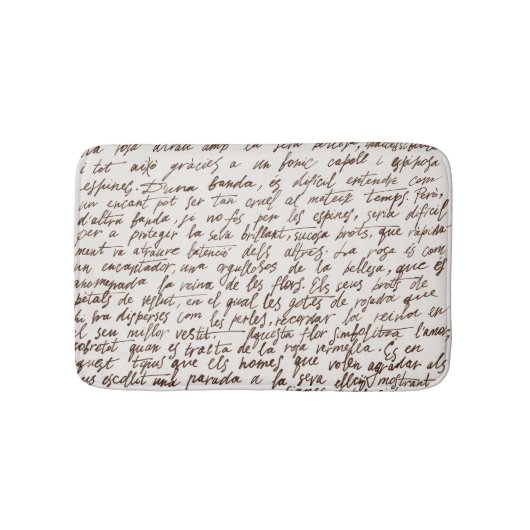 rosa atrau amb la seva
i tot això gràcies a un fonic capoll i esposa
espines. D'una banda, és difícil entendre com
un encant pot ser tan cruel al mateix temps. Però,
d'altra banda, si no fos per les espines, seria difícil
per a protegir la seva brillant, sucosa brots, que rapida
ment va atraure l'atenció dels altres. La rosa és com
un encantador, una orgullosos de la bellesa, que és
anomenada la reina de les flors. Els seus brots de
pètals de vellut, en el qual les gotes de rosada que
dispersos com les perles, recordar la reina en
el seu millor vestit. Aquesta flor simbolitza l'amor
sobretot quan es tracta de la rosa vermella. És en
quest tipus que els homes que volen agradar als
us escollit una parada a la seva elecció, mostrant